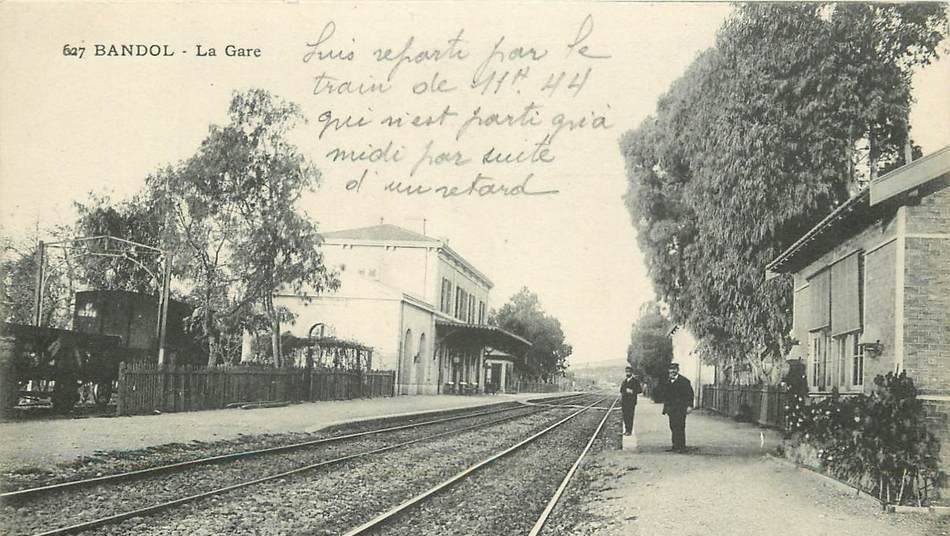 627 BANDOL - La Gare
Suis reparti par le
train de 11H. 44
qui n'est parti qu'à
midi par suite
d'un retard